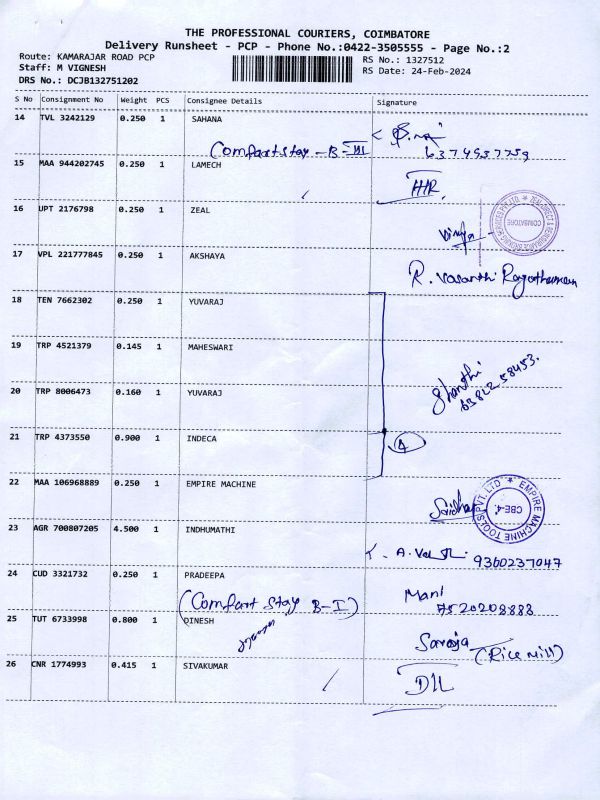 THE PROFESSIONAL COURIERS, COIMBATORE
Delivery Runsheet - PCP - Phone No.:0422-3505555 - Page No.:2
Route: KAMARAJAR ROAD PCP
Staff: M VIGNESH
DRS No.: DCJB132751202
RS No.: 1327512
RS Date: 24-Feb-2024
S No Consignment No Weight PCS Consignee Details Signature
14 TVL 3242129 0.250 1 SAHANA
(Comfort stay - B-III 6374937759
15 MAA 944202745 0.250 1 LAMECH
16 UPT 2176798 0.250 1 ZEAL
COIMBATORE
17 VPL 221777845 0.250 1 AKSHAYA
R. Vasanthi
18 TEN 7662302 0.250 1 YUVARAJ
19 TRP 4521379 0.145 1 MAHESWARI
20 TRP 8006473 0.160 1 YUVARAJ
Shanthi
63822 58453.
21 TRP 4373550 0.900 1 INDECA
4
22 MAA 106968889 0.250 1 EMPIRE MACHINE
EMPIRE MACHINE TOOLS PVT. LTD
CBE-4.
23 AGR 700807205 4.500 1 INDHUMATHI
9360237047
24 CUD 3321732 0.250 1 PRADEEPA
(Comfort stay B-I) Mani
7520208888
25 TUT 6733998 0.800 1 DINESH
Saroja
(Rice mill)
26 CNR 1774993 0.415 1 SIVAKUMAR